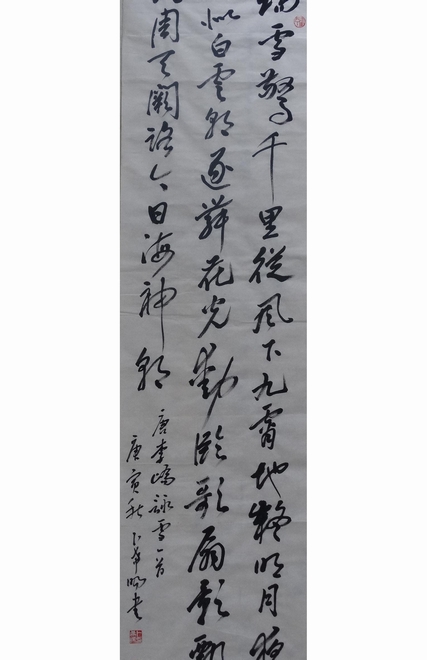 瑞雪驚千里從風下九霄地疑明月夜
似白雲朝逐舞花光動臨歌扇影飄
周天闕路今日海神朝
唐李嶠詠雪一首
庚寅秋
書